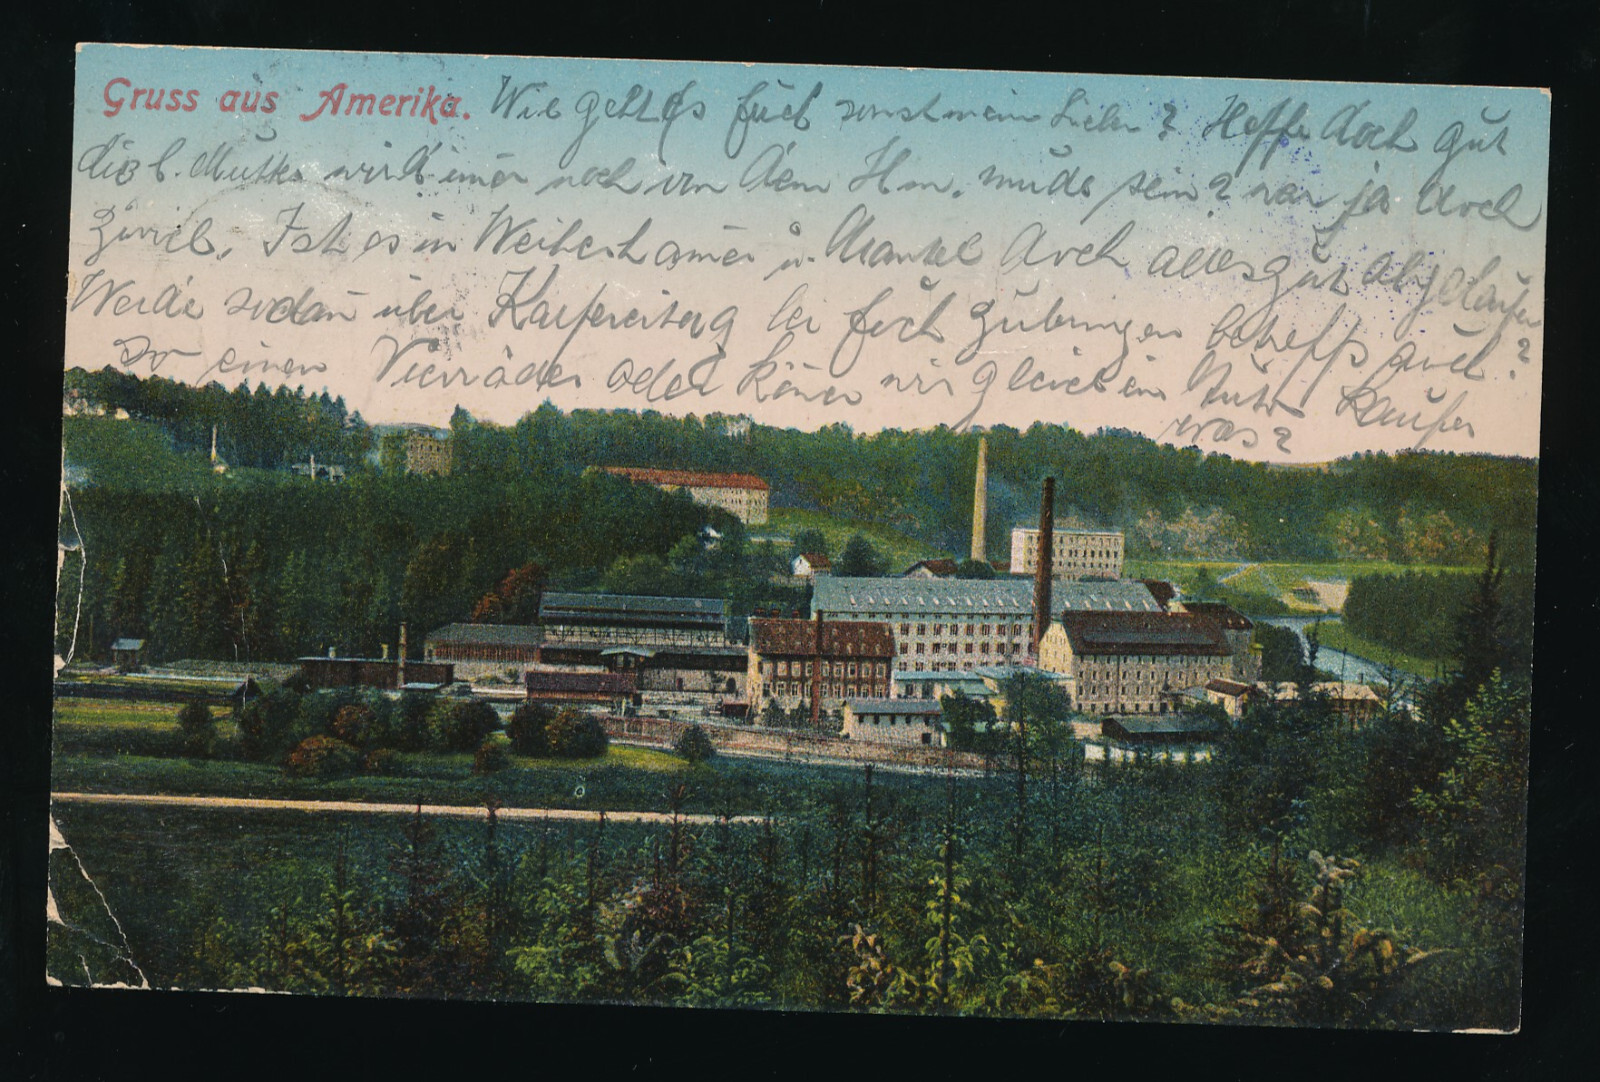 Gruss aus Amerika. Wie geht es Euch sonst mein Lieber? Hoffe doch gut
die l. Mutter wird immer noch von dem müde sein? war ja doch
zuviel. Ist es in u. doch alles gut abgelaufen?
Werde sodan über bei Euch zubringen betreffs
So einen Vierräder oder könen wir gleich ein Auto kaufen
was?